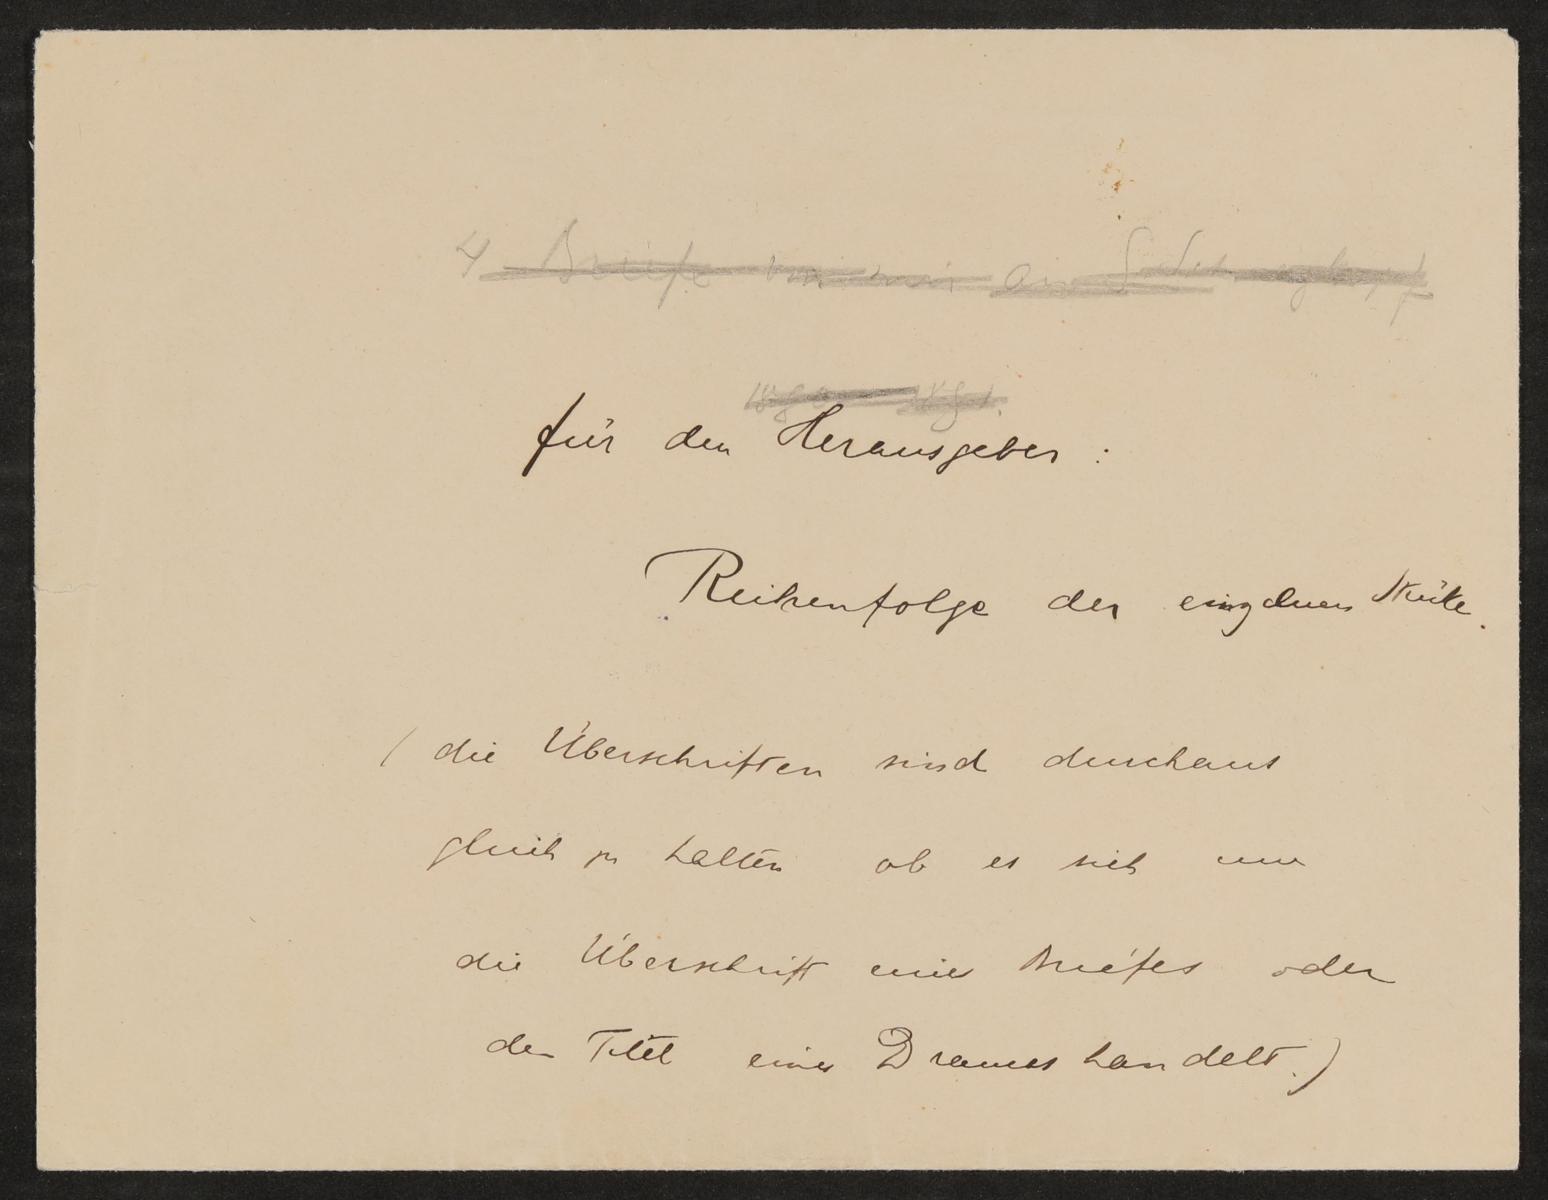 4 Briefe von mir an S.
für den Herausgeber :
Reihenfolge der einzelnen Stücke.
( die Überschriften sind durchaus
gleich zu halten ob es sich um
die Überschrift eines Briefes oder
den Titel eines Dramas handelt.)